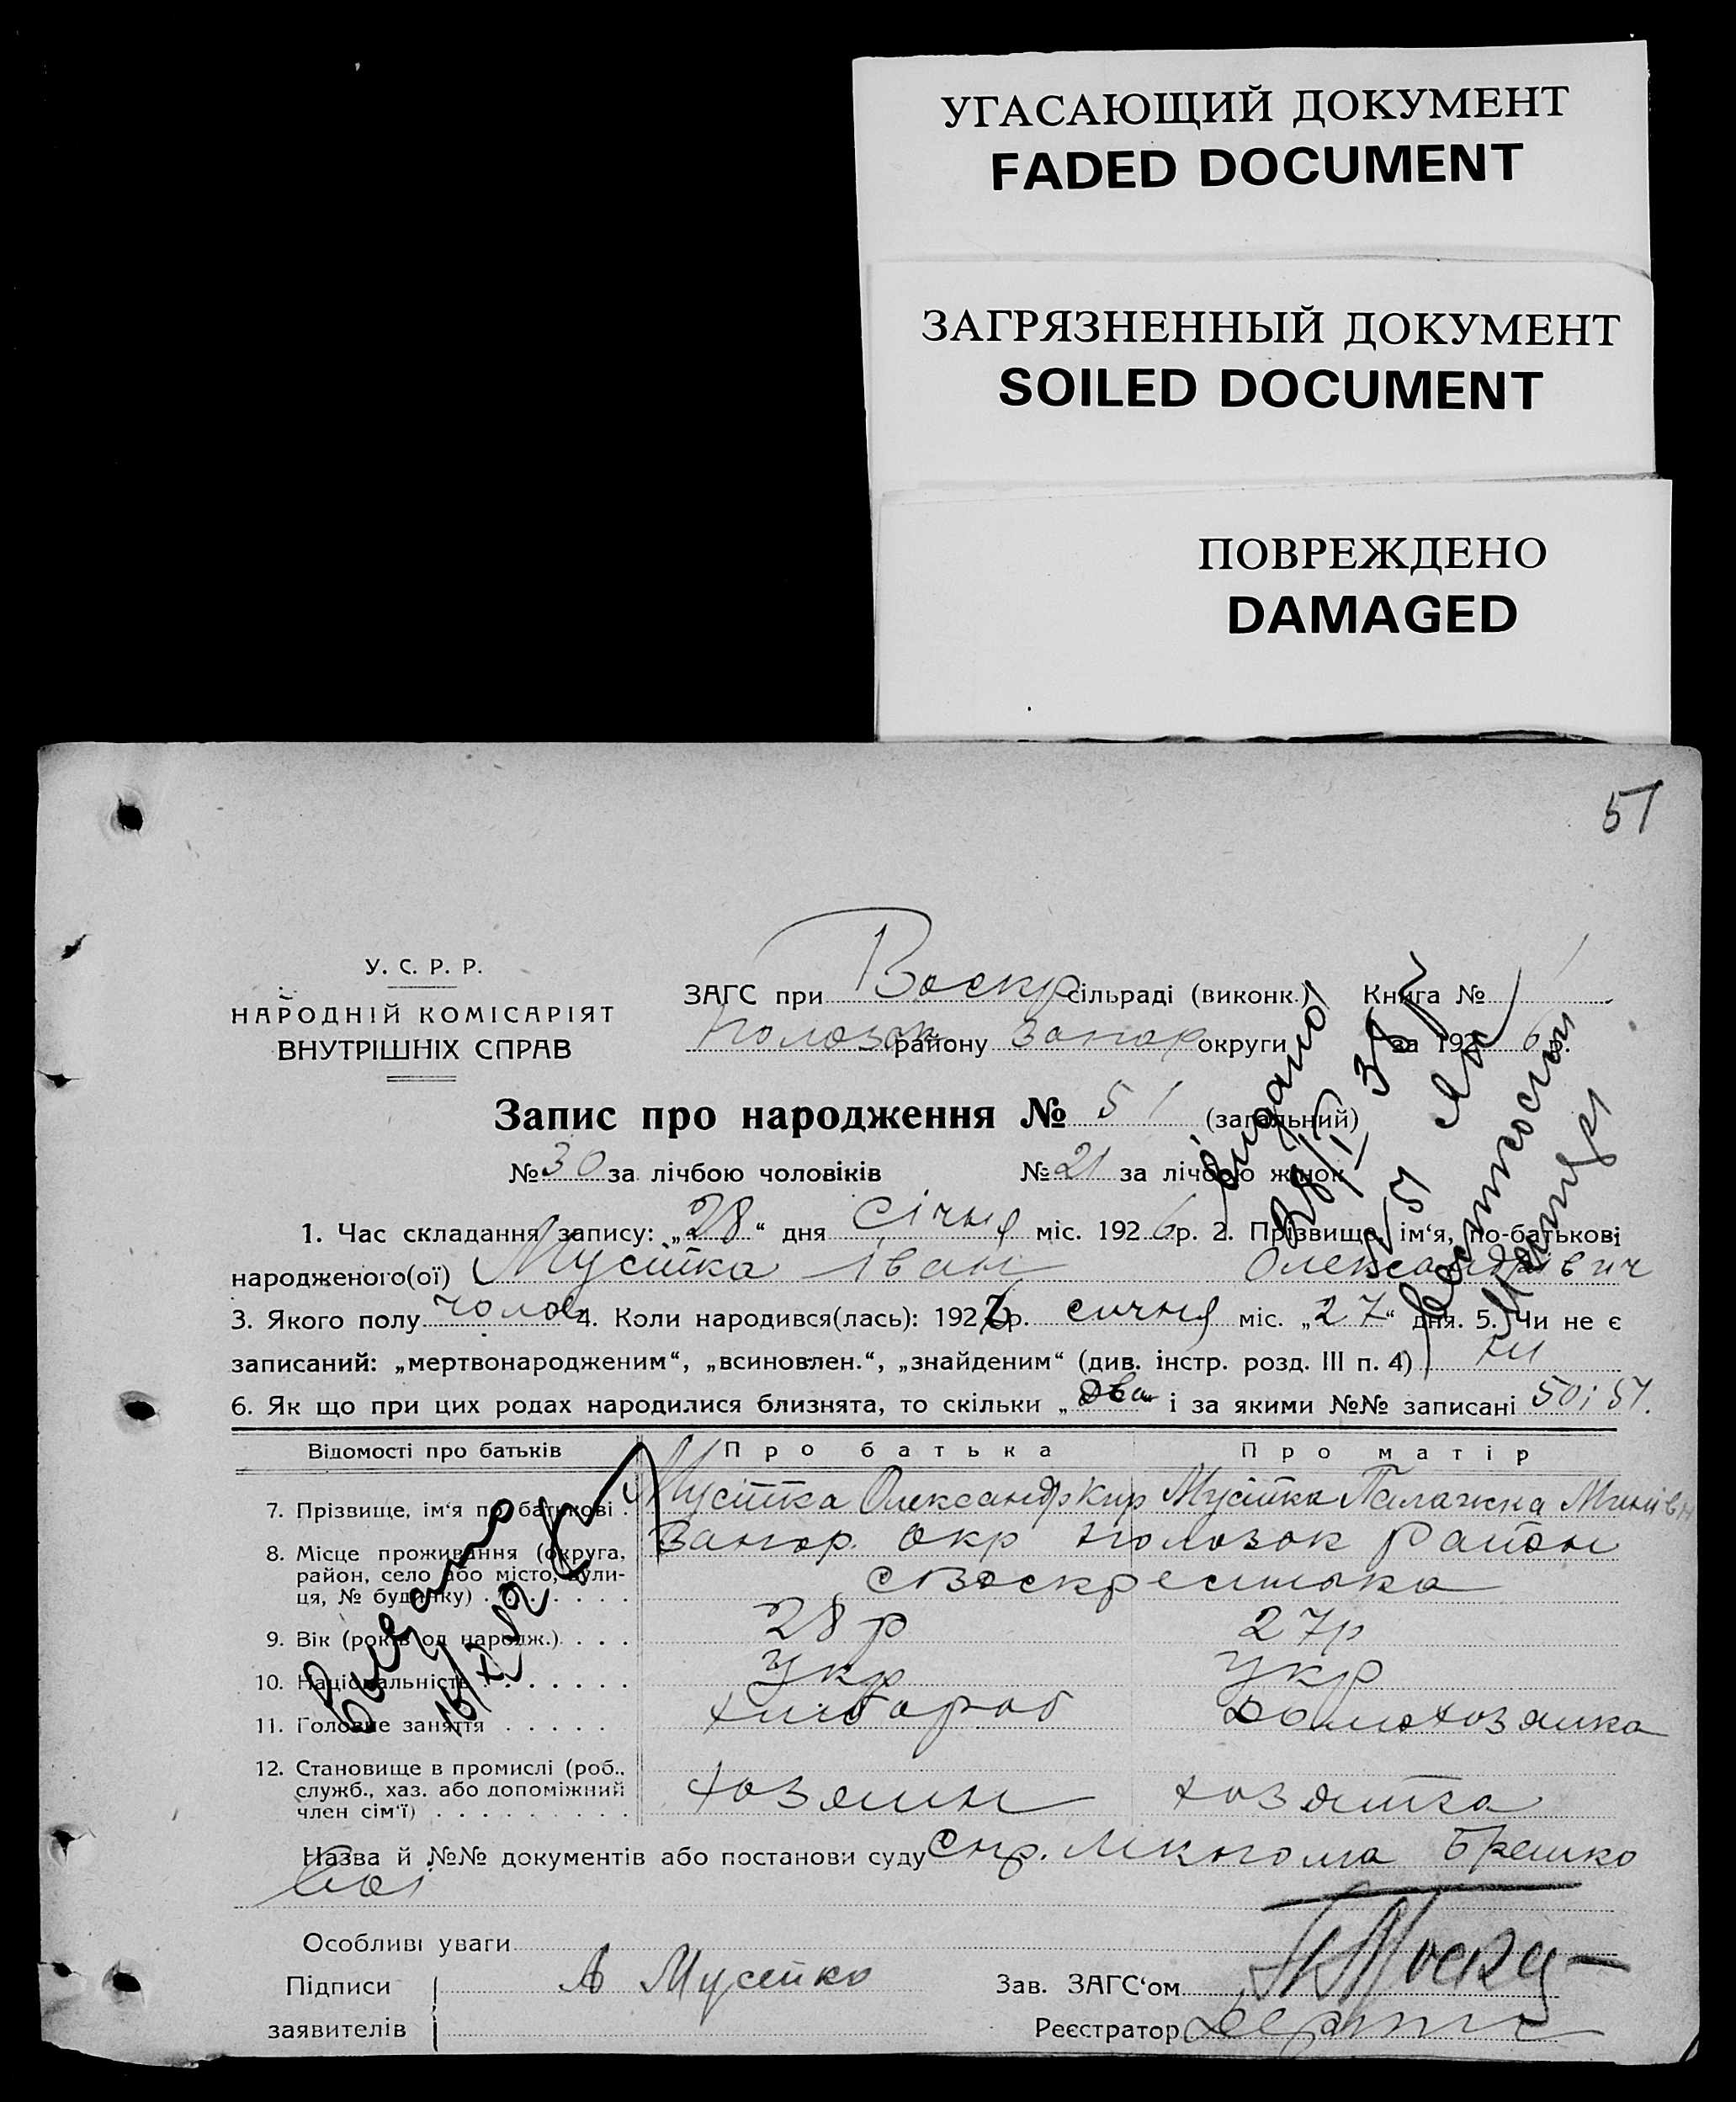 УГАСАЮЩИЙ ДОКУМЕНТ
FADED DOCUMENT
ЗАГРЯЗНЕННЫЙ ДОКУМЕНТ
SOILED DOCUMENT
ПОВРЕЖДЕНО
DAMAGED
51
У. С. Р. Р.
НАРОДНІЙ КОМІСАРІЯТ
ВНУТРІШНІХ СПРАВ
ЗАГС при Воскр сільраді (виконк.) Книга № 1
Полозок району Запор округи за 1926 р.
Запис про народження № 51 (загальний)
№ 30 за лічбою чоловіків № 21 за лічбою жінок
1. Час складання запису: „28“ дня Січня міс. 1926 р. 2. Прізвище, ім'я, по-батькові
народженого(ої) Мусійка Іван Олександрівич
3. Якого полу чолов 4. Коли народився(лась): 1926 р. сичня міс. „27“ дня. 5. Чи не є
записаний: „мертвонародженим“, „всиновлен.“, „знайденим“ (див. інстр. розд. III п. 4) ни
6. Як що при цих родах народилися близнята, то скільки „два“ і за якими №№ записані 50 і 51.
Відомості про батьків Про батька Про матір
7. Прізвище, ім'я по батькові . Мусійка Олександр Кир Мусійка Палажка Минівн
8. Місце проживання (округа, Запор. окр полозок район
район, село або місто, вули- с Воскресинока
ця, № будинку) . . . . . . . .
9. Вік (років од народж.) . . . 28 р 27р
10. Національність . . . . . . . Укр Укр
11. Головне заняття . . . . . хлібороб Домохозяика
12. Становище в промислі (роб.,
служб., хаз. або допоміжний хозяин хозяйка
член сім'ї) . . . . . . . . .
Назва й №№ документів або постанови суду Спр. Брешко
Особливі уваги
Підписи А Мусейко Зав. ЗАГС'ом
заявителів Реєстратор
Видано
Видано